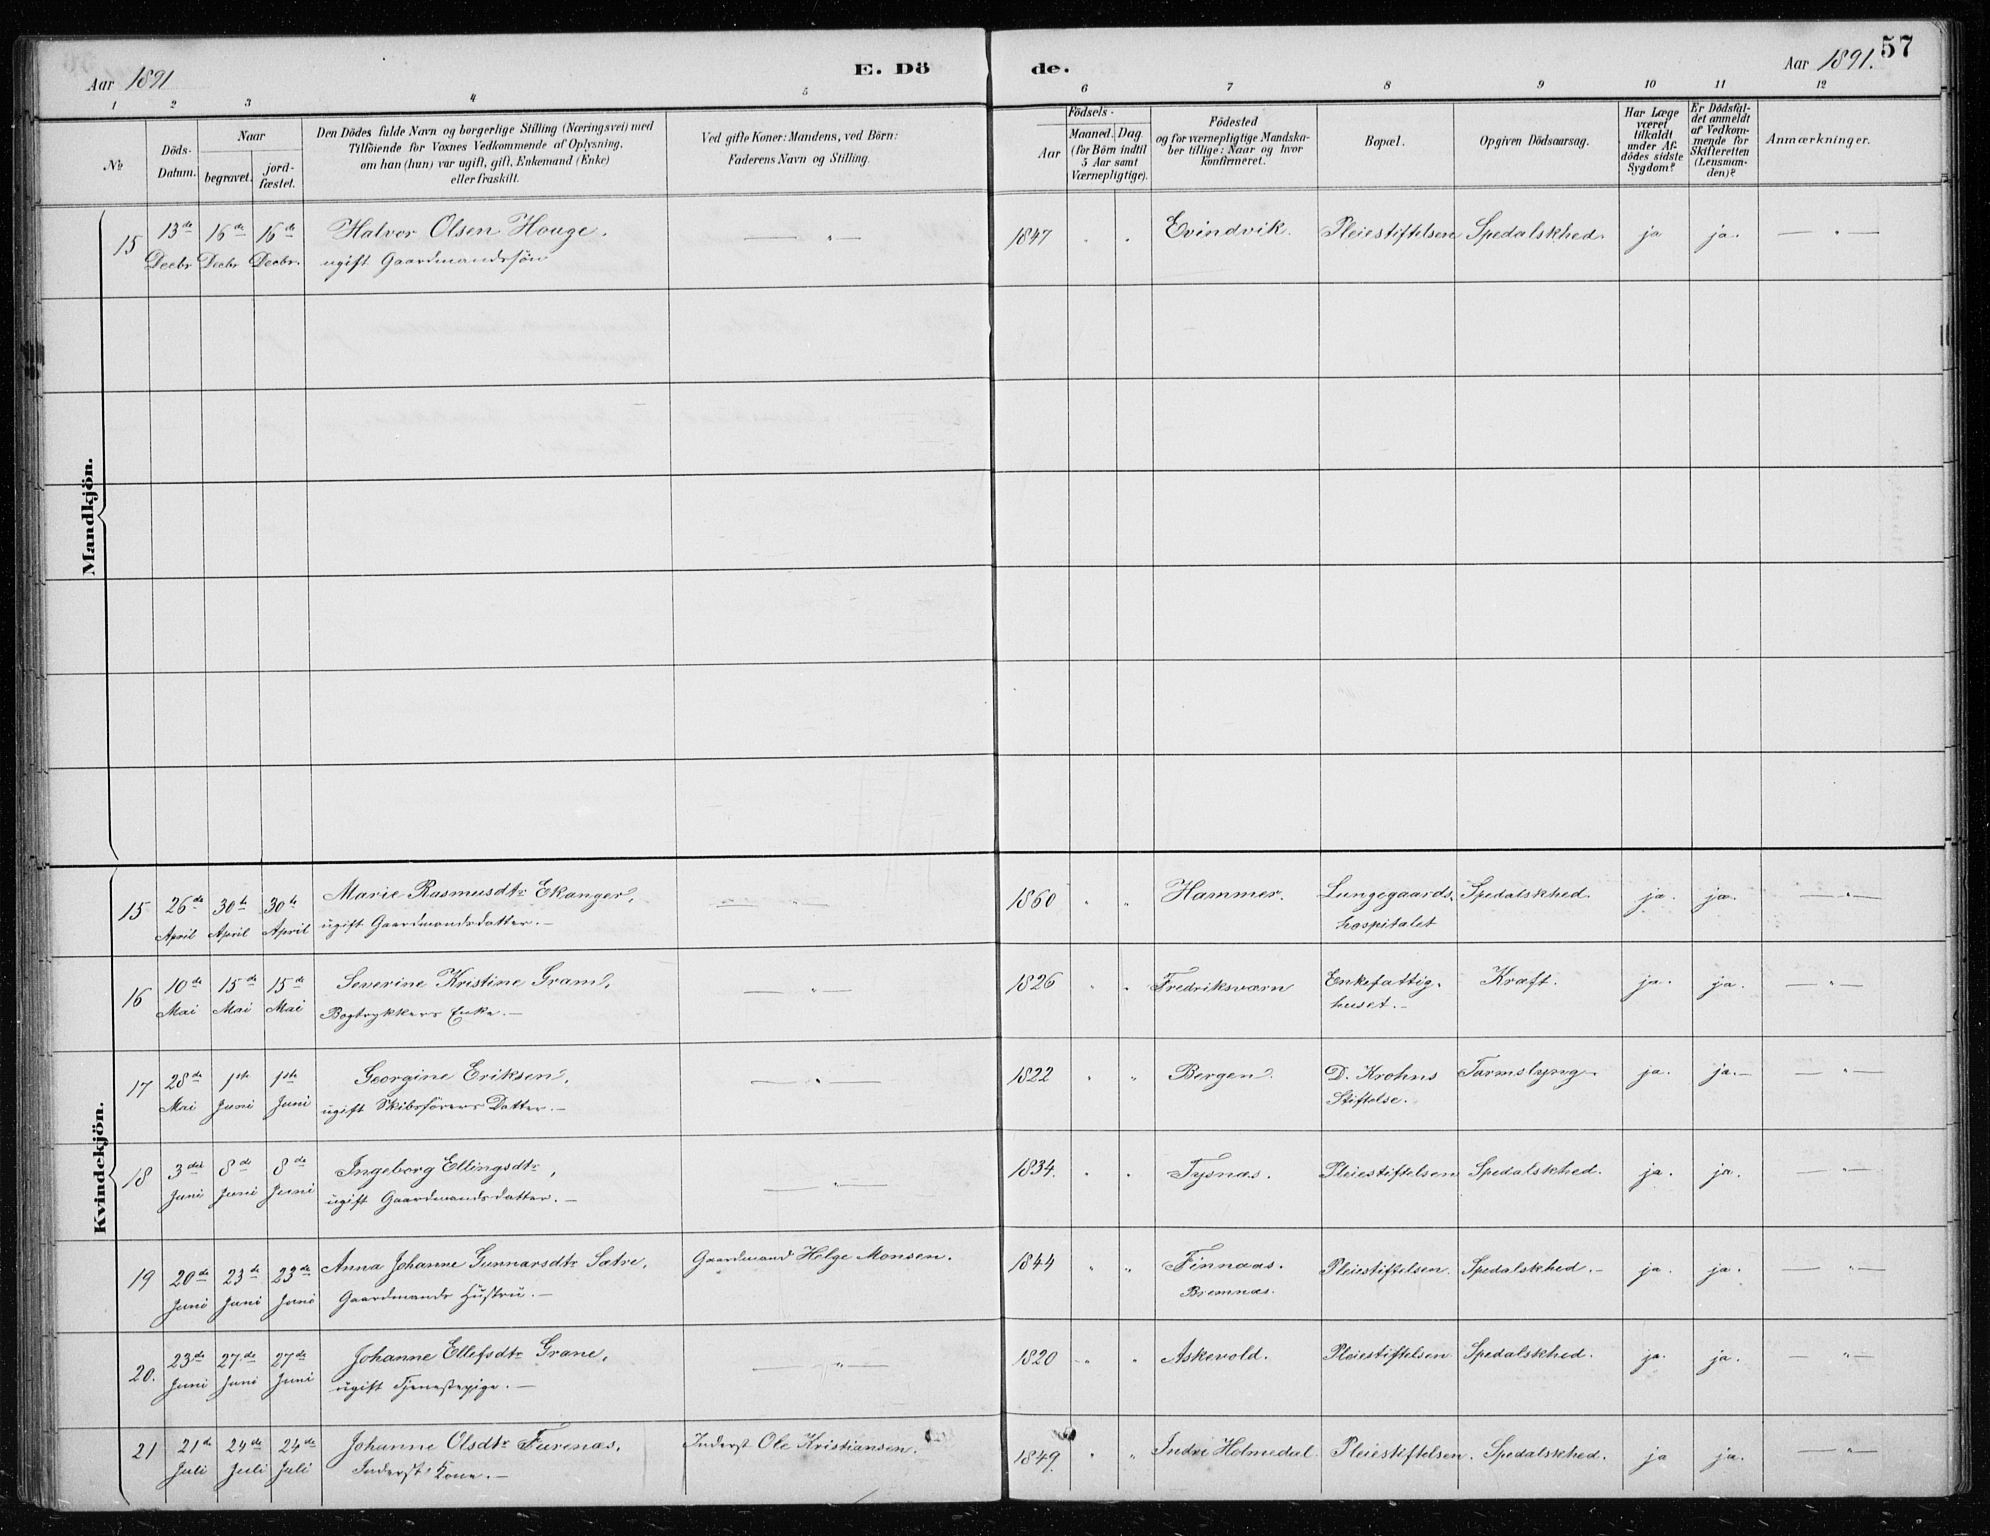 57
Aar 1891
E. Dö
de.
Aar 1891.
1 2 3 4 5 6 7 8 9 10 11 12
№
Döds-
Datum.
Naar
begravet.
jord-
fæstet.
Den Dödes fulde Navn og borgerlige Stilling (Næringsvei) med
Tilföiende for Voxnes Vedkommende af Oplysning,
om han (hun) var ugift, gift, Enkemand (Enke)
eller fraskilt.
Ved gifte Koner: Mandens, ved Börn:
Faderens Navn og Stilling.
Födsels-
Aar
Maaned. Dag.
(for Börn indtil
5 Aar samt
Værnepligtige).
Födested
og for værnepligtige Mandska-
ber tillige: Naar og hvor
konfirmeret.
Bopæl.
Opgiven Dödsaarsag.
Har Læge
været
tilkaldt
under Af-
dödes sidste
Sygdom?
Er Dödsfal-
det anmeldt
af Vedkom-
mende for
Skifteretten
(Lensman-
den)?
Anmærkninger.
Mandkjön.
15 13de 16de 16de Halvor Olsen Houge, — " — 1847 " " Evindvik. Pleiestiftelsen Spedalskhed. ja ja. — " —
Decbr Decbr Decbr. ugift Gaardmandssön
Kvindekjön.
15 26de 30te 30te Marie Rasmusdtr Ekanger, — " — 1860 " " Hammer. Lungegaards- Spedalskhed. ja. ja. — " —
April April April ugift Gaardmandsdatter. — hospitalet
16 10de 15de 15de Severine Kristine Gram, — " — 1826 " " Fredriksværn Enkefattig- Kræft. ja. ja. — " —
Mai Mai Mai Bogtrykkers Enke. — huset. —
17 28de 1ste 1ste Georgine Eriksen, — " — 1822 " " Bergen. D. Krohns Tarmslyng. ja. ja. — — " —
Mai Juni Juni ugift Skibsförers Datter. — Stiftelse.
18 3die 8de 8de Ingeborg Ellingsdtr, — " — 1834. " " Tysnæs. Pleiestiftelsen Spedalskhed. ja. ja. — " —
Juni Juni Juni ugift Gaardmandsdatter. —
19 20de 23de 23de Anna Johanne Gunnarsdtr Sætre, Gaardmand Helge Monsen. 1844 " " Finnaas. Pleiestiftelsen. Spedalskhed. — ja. ja. — " —
Juni Juni Juni Gaardmands Hustru. — Bremnæs.
20. 23de 27de 27de Johanne Ellefsdtr Grane, — " — 1820 " " Askevold. Pleiestiftelsen Spedalskhed. ja. ja. — " —
Juni Juni Juni ugift Tjenestepige. —
21 21de 24de 24de Johanne Olsdtr Furenæs, Inderst Ole Kristiansen. 1849. " " Indre Holmedal. Pleiestiftelsen. Spedalskhed. ja ja. — " —
Juli Juli Juli Inderst' Kone. —